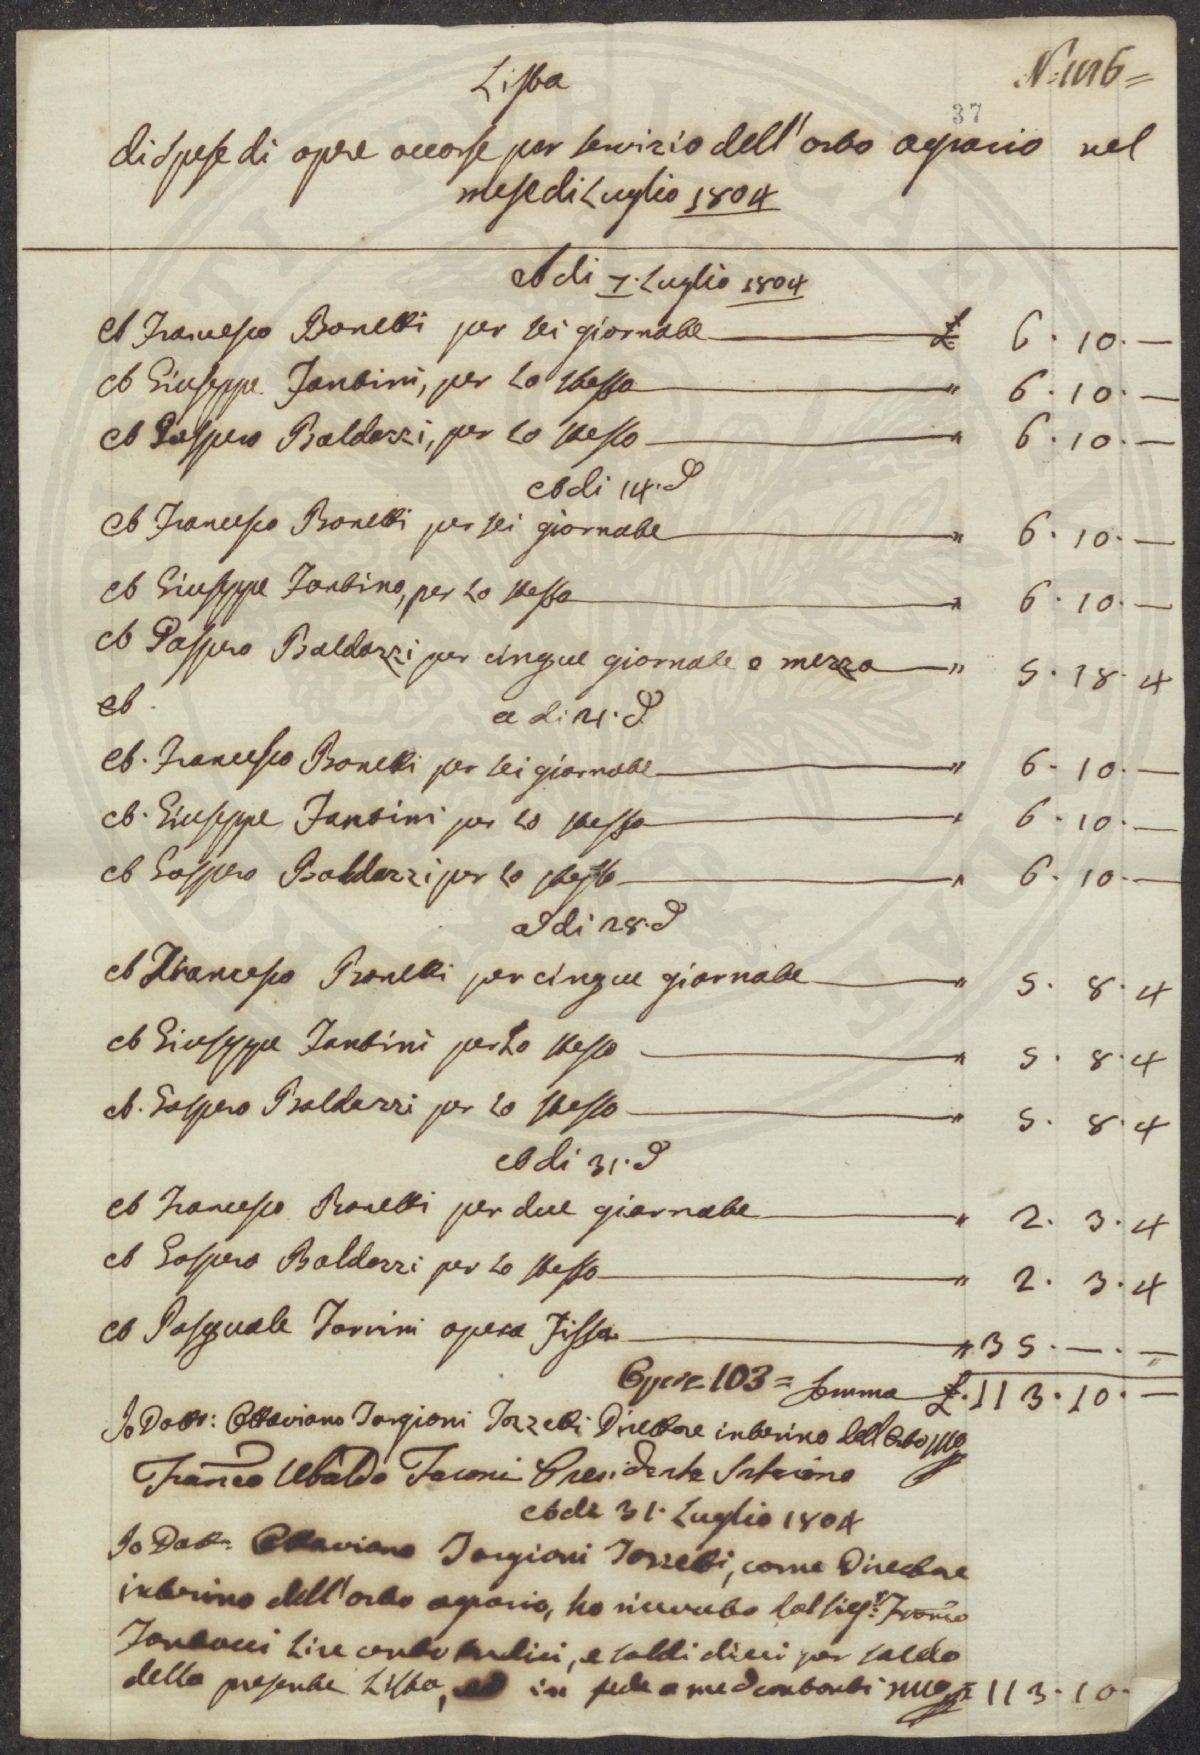 N: 106=
37
Lista
di spese di opere occorse per servizio dell'orto agrario nel
mese di Luglio 1804
A di 7. Luglio 1804
A Francesco Bonetti per sei giornate £ 6. 10. —
A Giuseppe Fantini, per lo stesso " 6. 10. —
A Gaspero Baldazzi, per lo stesso " 6. 10. —
A di 14. d
A Francesco Bonetti per sei giornate " 6. 10. —
A Giuseppe Fantino, per lo stesso " 6. 10. —
A Gaspero Baldazzi per cinque giornate e mezza " 5. 18. 4
A.
a di 21. d
A. Francesco Bonetti per sei giornate " 6. 10. —
A. Giuseppe Fantini per lo stesso " 6. 10. —
A Gaspero Baldazzi per lo stesso " 6. 10. —
A di 28. d
A Francesco Bonetti per cinque giornate " 5. 8. 4
A Giuseppe Fantini per lo stesso " 5. 8. 4
A. Gaspero Baldazzi per lo stesso " 5. 8. 4
A di 31. d
A Francesco Bonetti per due giornate " 2. 3. 4
A Gaspero Baldazzi per lo stesso " 2. 3. 4
A Pasquale opera fissa " 35. —. —
Opere 103 = somma £. 113. 10. —
Io Dott: Ottaviano Targioni Tozzetti Direttore interino dell'Orto
Franco Ubaldo Presidente Interino
A di 31. Luglio 1804
Io Dott: Ottaviano Targioni Tozzetti, come Direttore
interino dell'orto agrario, ho ricevuto dal Sigr: Franco
lire cento tredici, e soldi dieci per saldo
della presente Lista, ed in fede a me contanti £ 113. 10.